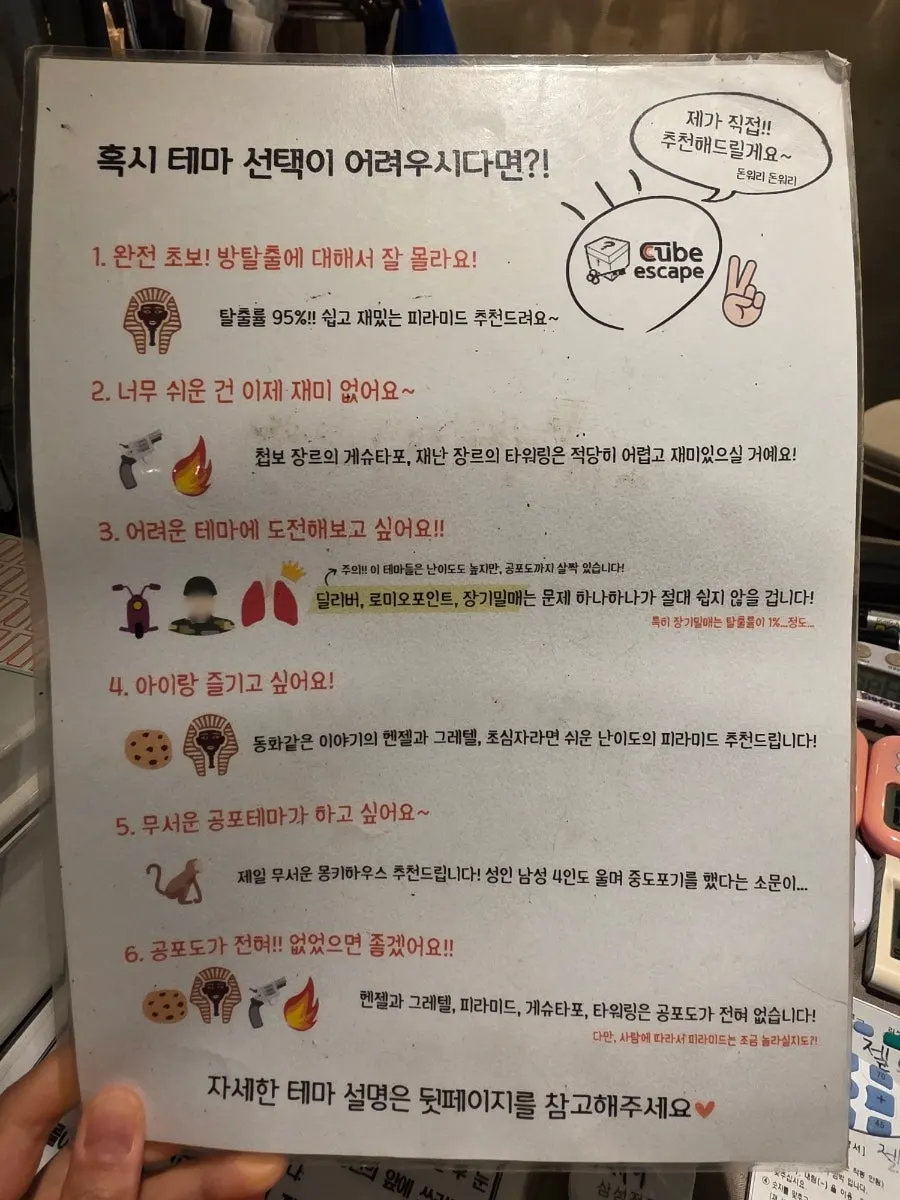 혹시 테마 선택이 어려우시다면?!
제가 직접!!
추천해드릴게요~
돈워리 돈워리
Cube
escape
1. 완전 초보! 방탈출에 대해서 잘 몰라요!
탈출률 95%!! 쉽고 재밌는 피라미드 추천드려요~
2. 너무 쉬운 건 이제 재미 없어요~
첩보 장르의 게슈타포, 재난 장르의 타워링은 적당히 어렵고 재미있으실 거예요!
3. 어려운 테마에 도전해보고 싶어요!!
주의!! 이 테마들은 난이도도 높지만, 공포도까지 살짝 있습니다!
딜리버, 로미오포인트, 장기밀매는 문제 하나하나가 절대 쉽지 않을 겁니다!
특히 장기밀매는 탈출률이 1%...정도...
4. 아이랑 즐기고 싶어요!
동화같은 이야기의 헨젤과 그레텔, 초심자라면 쉬운 난이도의 피라미드 추천드립니다!
5. 무서운 공포테마가 하고 싶어요~
제일 무서운 몽키하우스 추천드립니다! 성인 남성 4인도 울며 중도포기를 했다는 소문이...
6. 공포도가 전혀!! 없었으면 좋겠어요!!
헨젤과 그레텔, 피라미드, 게슈타포, 타워링은 공포도가 전혀 없습니다!
다만, 사람에 따라서 피라미드는 조금 놀라실지도?!
자세한 테마 설명은 뒷페이지를 참고해주세요